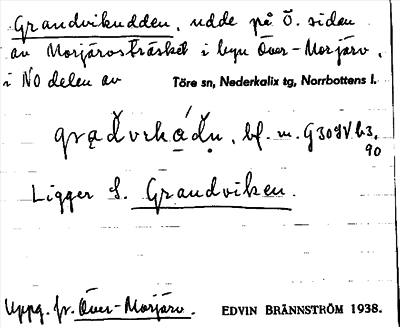 Grandvikudden, udde på Ö. sidan
av Morjärvsträsket i byn Över-Morjärv,
i NO delen av Töre sn, Nederkalix tg, Norrbottens l.
bf. m.
90
Ligger S. Grandviken.
Uppg. fr. Över-Morjärv. EDVIN BRÄNNSTRÖM 1938.